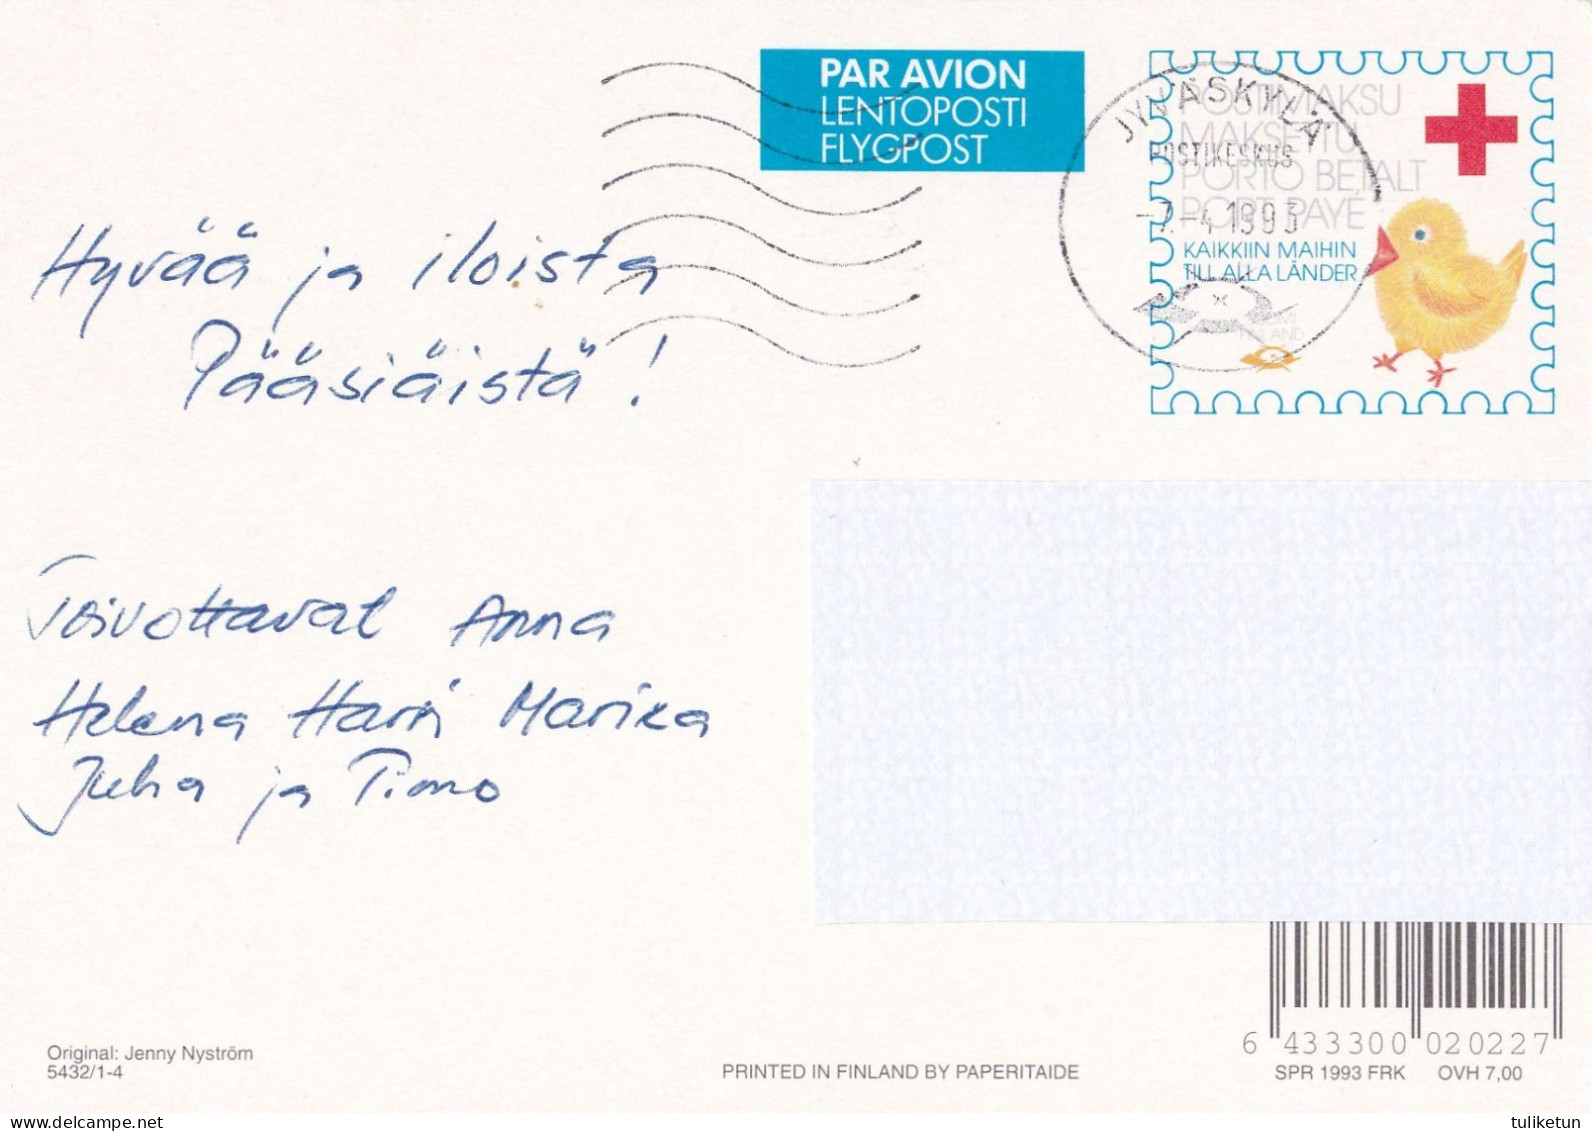 PAR AVION
LENTOPOSTI
FLYGPOST
JYVÄSKYLÄ
POSTIKESKUS
-7.-4.1993
POSTIMAKSU
MAKSETTU
PORTO BETALT
PORT PAYÉ
KAIKKIIN MAIHIN
TILL ALLA LÄNDER
SUOMI
FINLAND
Hyvää ja iloista
Pääsiäistä!
Toivottavat Anna
Helena Harri Marika
Juha ja Timo
Original: Jenny Nyström
5432/1-4
PRINTED IN FINLAND BY PAPERITAIDE
6 433300 020227
SPR 1993 FRK OVH 7,00
delcampe.net
tuliketun